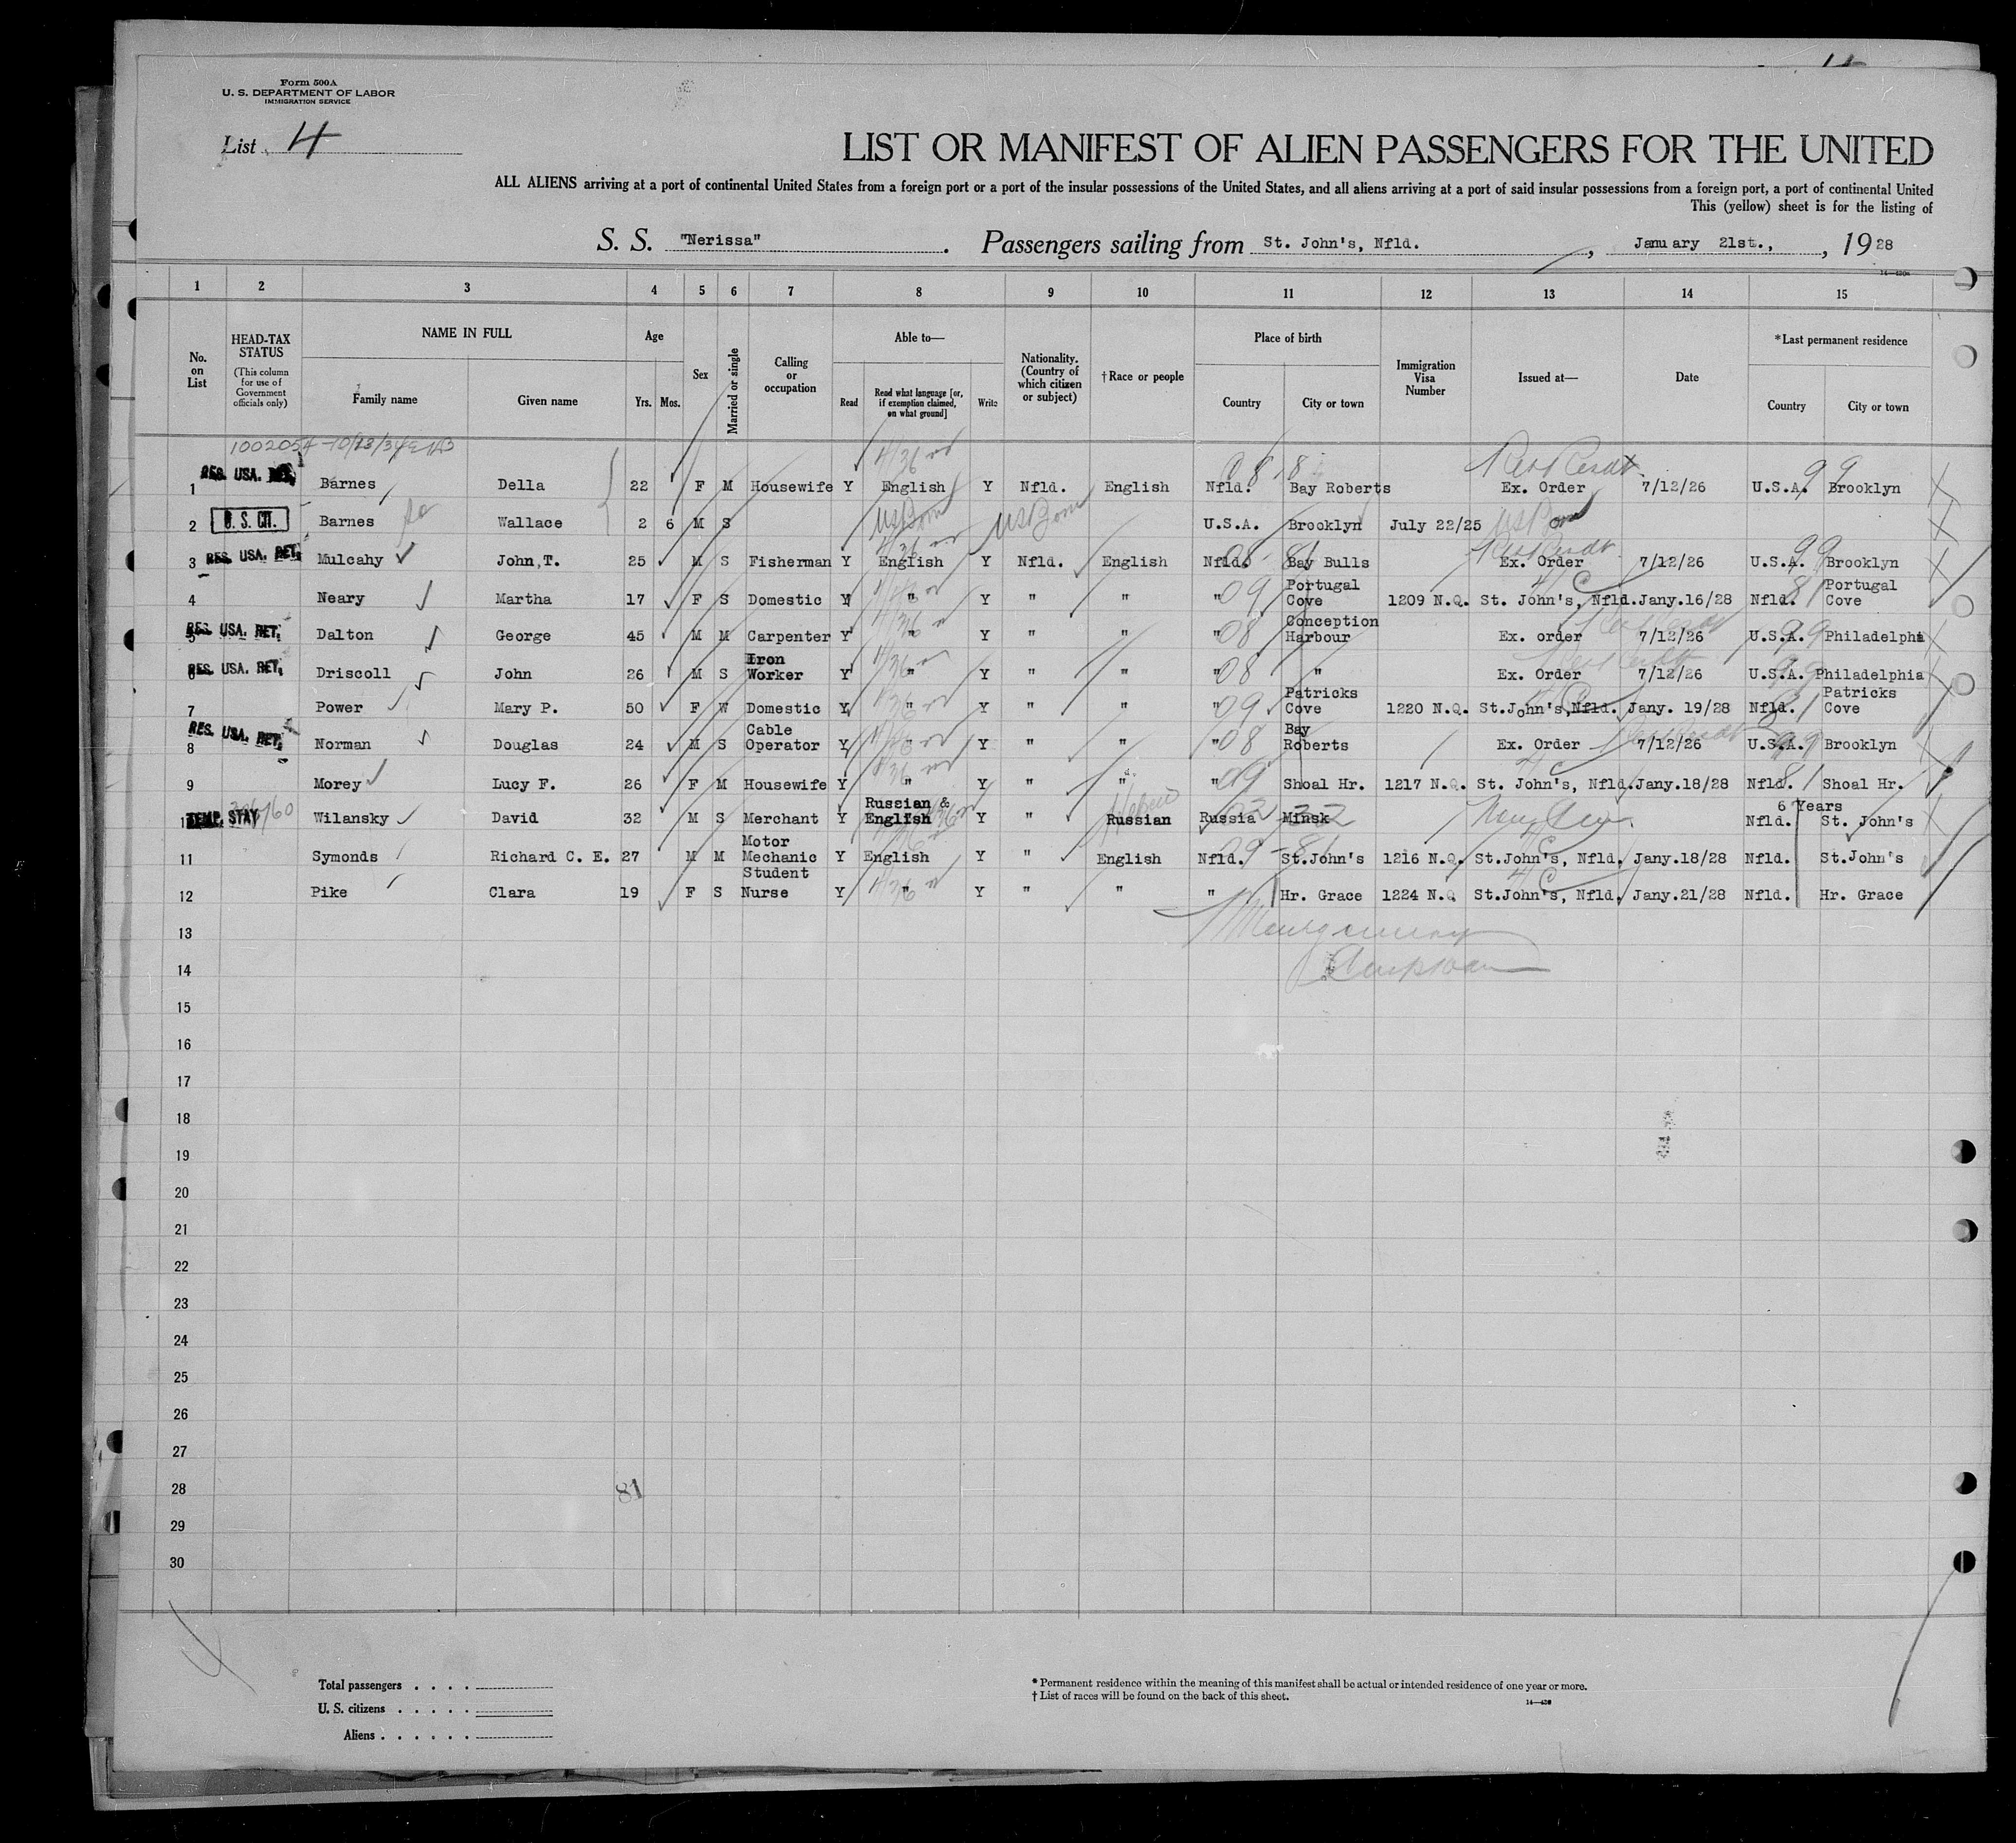 Form 500A
U. S. DEPARTMENT OF LABOR
IMMIGRATION SERVICE
List 4
LIST OR MANIFEST OF ALIEN PASSENGERS FOR THE UNITED
ALL ALIENS arriving at a port of continental United States from a foreign port or a port of the insular possessions of the United States, and all aliens arriving at a port of said insular possessions from a foreign port, a port of continental United
This (yellow) sheet is for the listing of
S. S. "Nerissa". Passengers sailing from St. John's, Nfld., January 21st., , 1928
1 2 3 4 5 6 7 8 9 10 11 12 13 14 15
No. on List
HEAD-TAX STATUS (This column for use of Government officials only)
NAME IN FULL
Family name Given name
Age
Yrs. Mos.
Sex
Married or single
Calling or occupation
Able to—
Read Read what language [or, if exemption claimed, on what ground] Write
Nationality. (Country of which citizen or subject)
†Race or people
Place of birth
Country City or town
Immigration Visa Number
Issued at—
Date
*Last permanent residence
Country City or town
1 RES. USA. RET. Barnes Della 22 F M Housewife Y English Y Nfld. English Nfld. Bay Roberts Ex. Order 7/12/26 U.S.A. Brooklyn
2 U. S. CIT. Barnes Wallace 2 6 M S US Born US Born U.S.A. Brooklyn July 22/25 US Born
3 RES. USA. RET. Mulcahy John,T. 25 M S Fisherman Y English Y Nfld. English Nfld. Bay Bulls Ex. Order 7/12/26 U.S.A. Brooklyn
4 Neary Martha 17 F S Domestic Y " Y " " " Portugal Cove 1209 N.Q. St. John's, Nfld. Jany.16/28 Nfld. Portugal Cove
5 RES. USA. RET. Dalton George 45 M M Carpenter Y " Y " " " Conception Harbour Ex. order 7/12/26 U.S.A. Philadelphi
6 RES. USA. RET. Driscoll John 26 M S Iron Worker Y " Y " " " " Ex. Order 7/12/26 U.S.A. Philadelphia
7 Power Mary P. 50 F W Domestic Y " Y " " " Patricks Cove 1220 N.Q. St.John's,Nfld. Jany. 19/28 Nfld. Patricks Cove
8 RES. USA. RET. Norman Douglas 24 M S Cable Operator Y " Y " " " Bay Roberts Ex. Order 7/12/26 U.S.A. Brooklyn
9 Morey Lucy F. 26 F M Housewife Y " Y " " " Shoal Hr. 1217 N.Q. St. John's, Nfld. Jany.18/28 Nfld. Shoal Hr.
10 TEMP. STAY Wilansky David 32 M S Merchant Y Russian & English Y " Hebrew Russian Russia Minsk 6 Years Nfld. St. John's
11 Symonds Richard C. E. 27 M M Motor Mechanic Y English Y " English Nfld. St.John's 1216 N.Q. St.John's, Nfld. Jany.18/28 Nfld. St.John's
12 Pike Clara 19 F S Student Nurse Y " Y " " " Hr. Grace 1224 N.Q St.John's, Nfld. Jany.21/28 Nfld. Hr. Grace
13
14
15
16
17
18
19
20
21
22
23
24
25
26
27
28
29
30
81
Total passengers
U. S. citizens
Aliens
* Permanent residence within the meaning of this manifest shall be actual or intended residence of one year or more.
† List of races will be found on the back of this sheet.
14—430